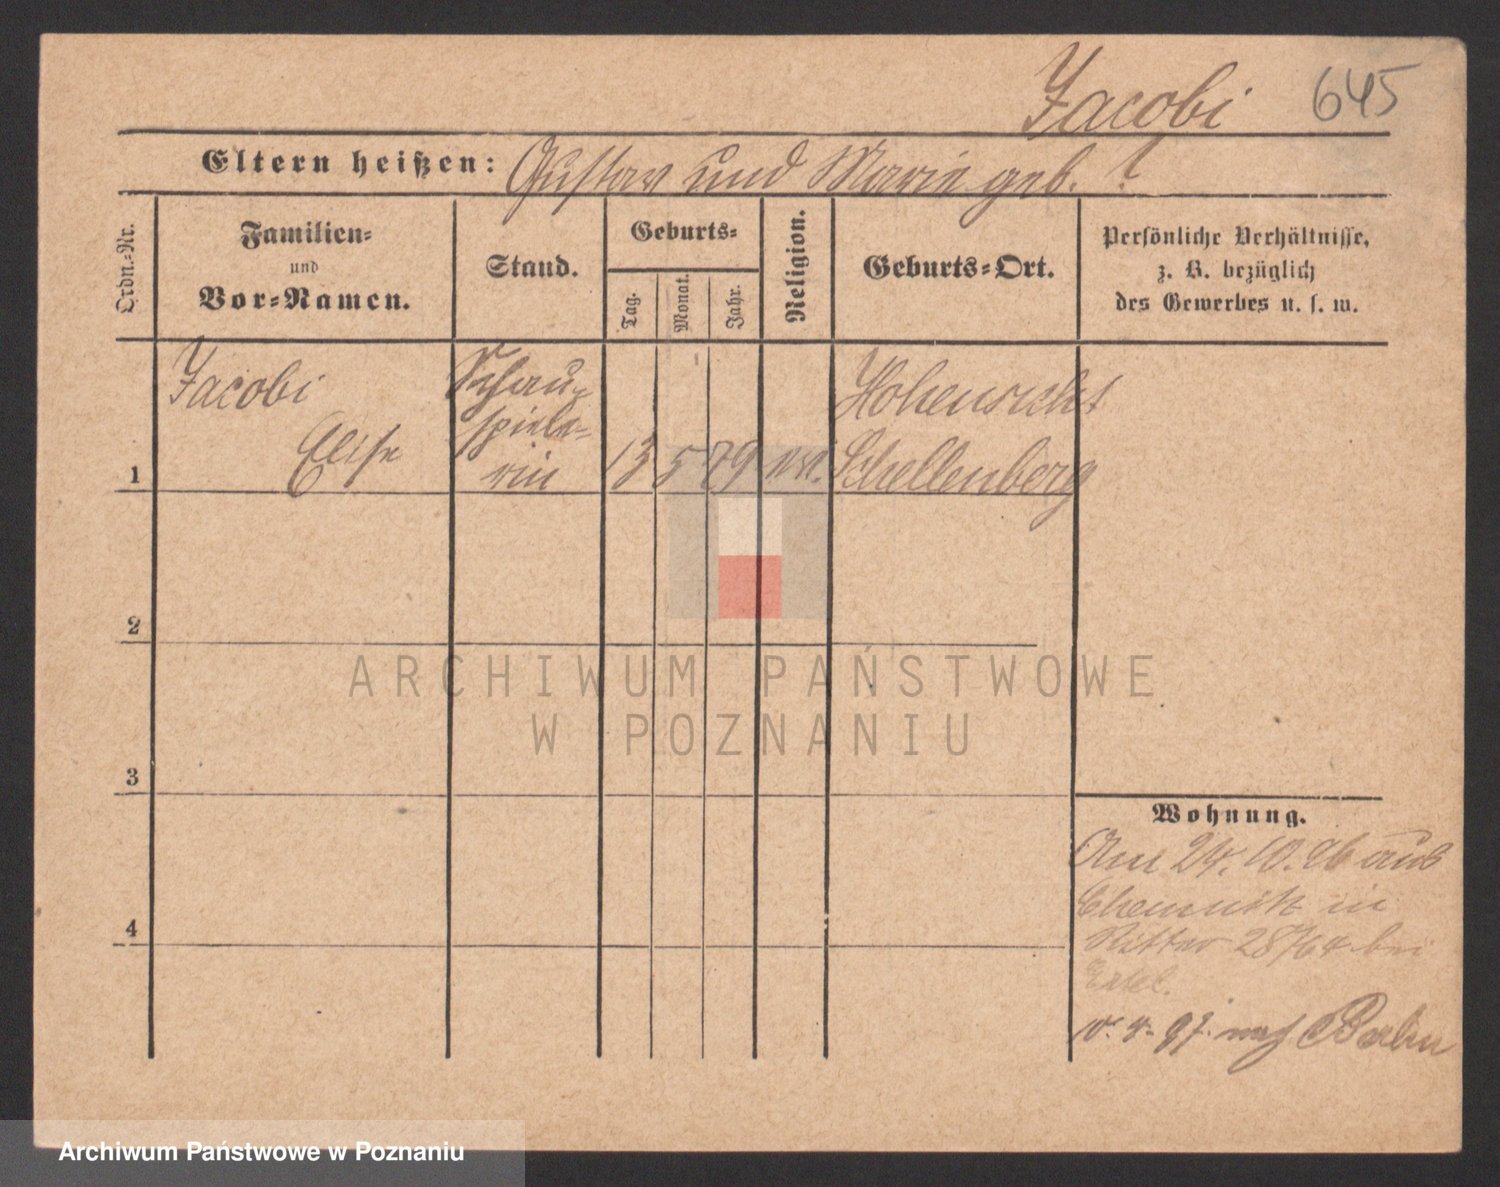 Jacobi 645
Eltern heißen: Gustav und Marie geb. ?
Ordn.-Nr.
Familien-
und
Vor-Namen.
Stand.
Geburts-
Tag.
Monat.
Jahr.
Religion.
Geburts-Ort.
Persönliche Verhältnisse,
z. B. bezüglich
des Gewerbes u. s. w.
1
Jacobi
Elise
Schau-
spiele-
rin
13 5 79
Schellenberg
2
3
4
Wohnung.
Am 24. 10. 96 aus
Chemnitz in
Ritter 28/64 bei
4. 97. nach Berlin
ARCHIWUM PAŃSTWOWE
W POZNANIU
Archiwum Państwowe w Poznaniu